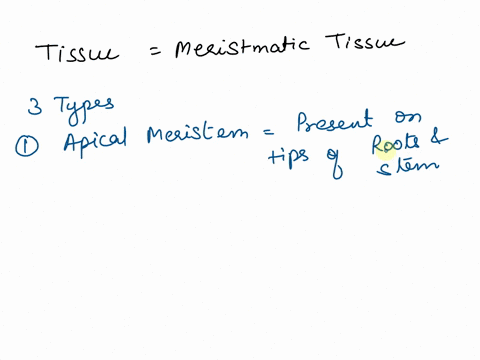 Tissue = Meristmatic Tissue
3 Types
① Apical Meristem = Present on
tips of Roots &
stem